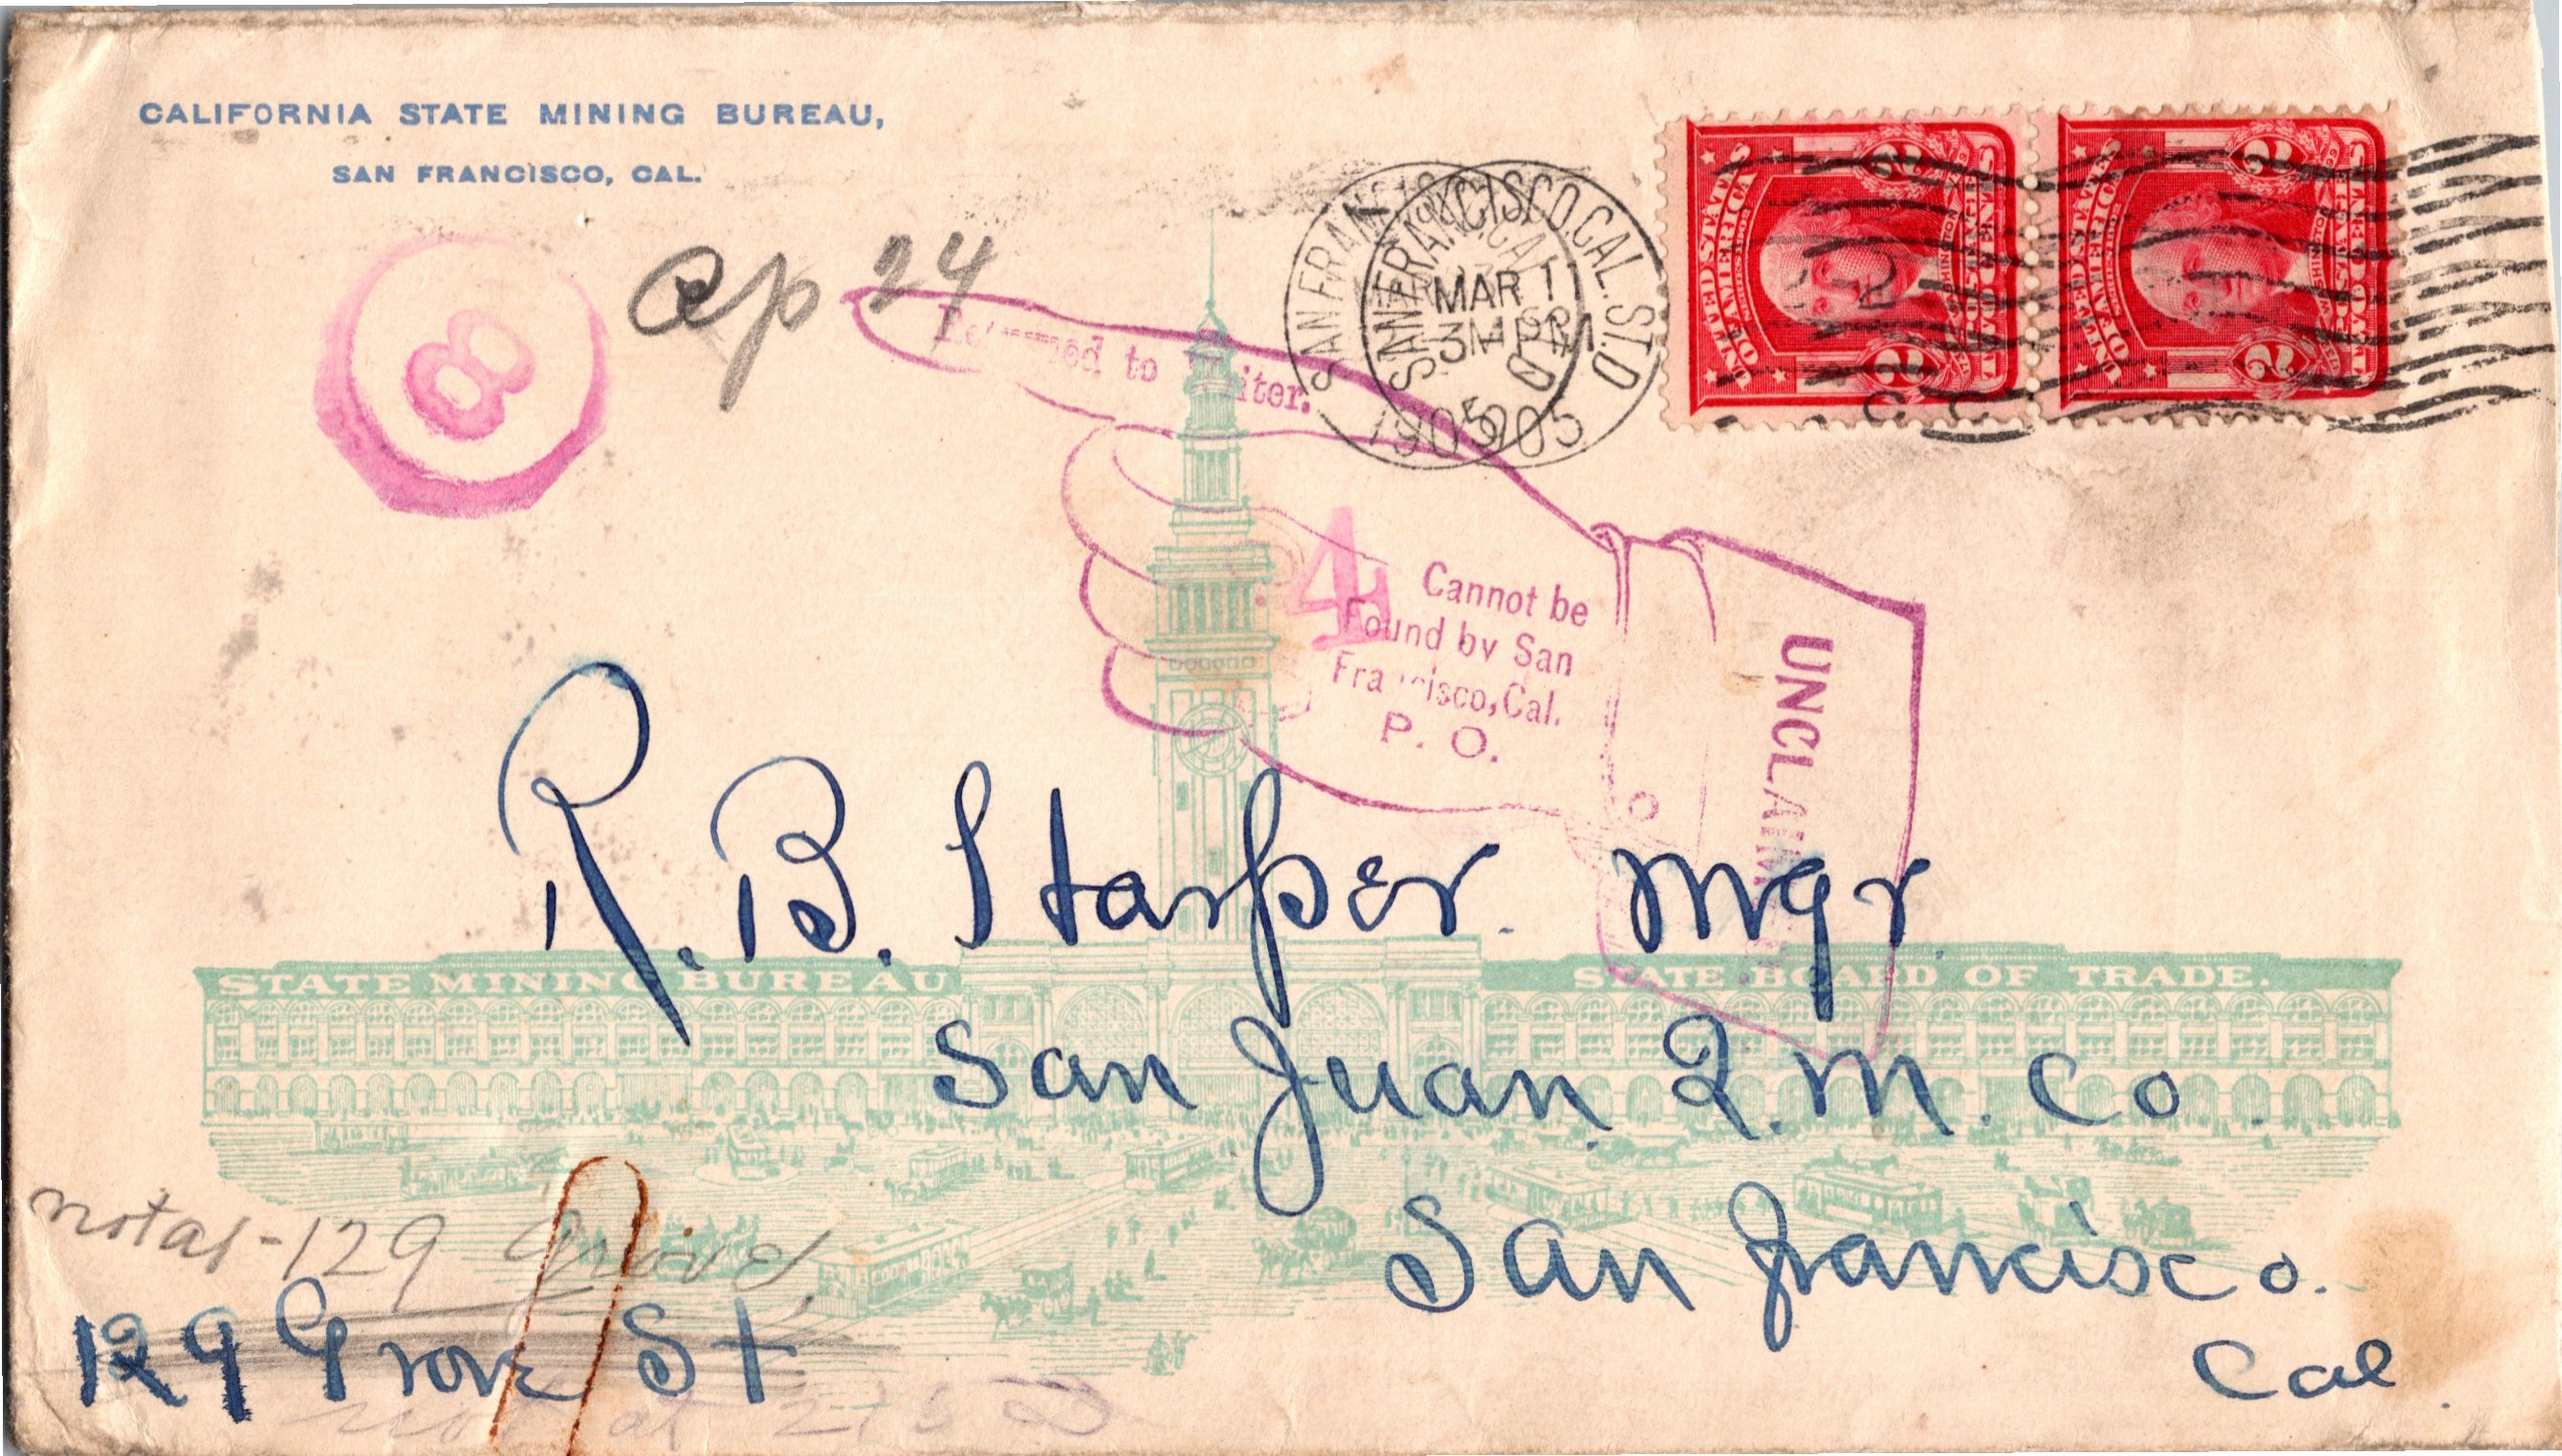 CALIFORNIA STATE MINING BUREAU,
SAN FRANCISCO, CAL.
8
Ap 24
Returned to Writer.
SAN FRANCISCO, CAL.
SAN FRANCISCO, CAL. ST. D
MAR 1
3 PM
1905
1905
UNITED STATES OF AMERICA
2 2
UNITED STATES OF AMERICA
2 2
4
Cannot be
Found by San
Francisco, Cal.
P. O.
UNCLAIMED
R. B. Harper. Mgr.
STATE MINING BUREAU
STATE BOARD OF TRADE.
San Juan Q. M. Co.
San Francisco.
Cal.
not at - 129 Grove
129 Grove St
not at